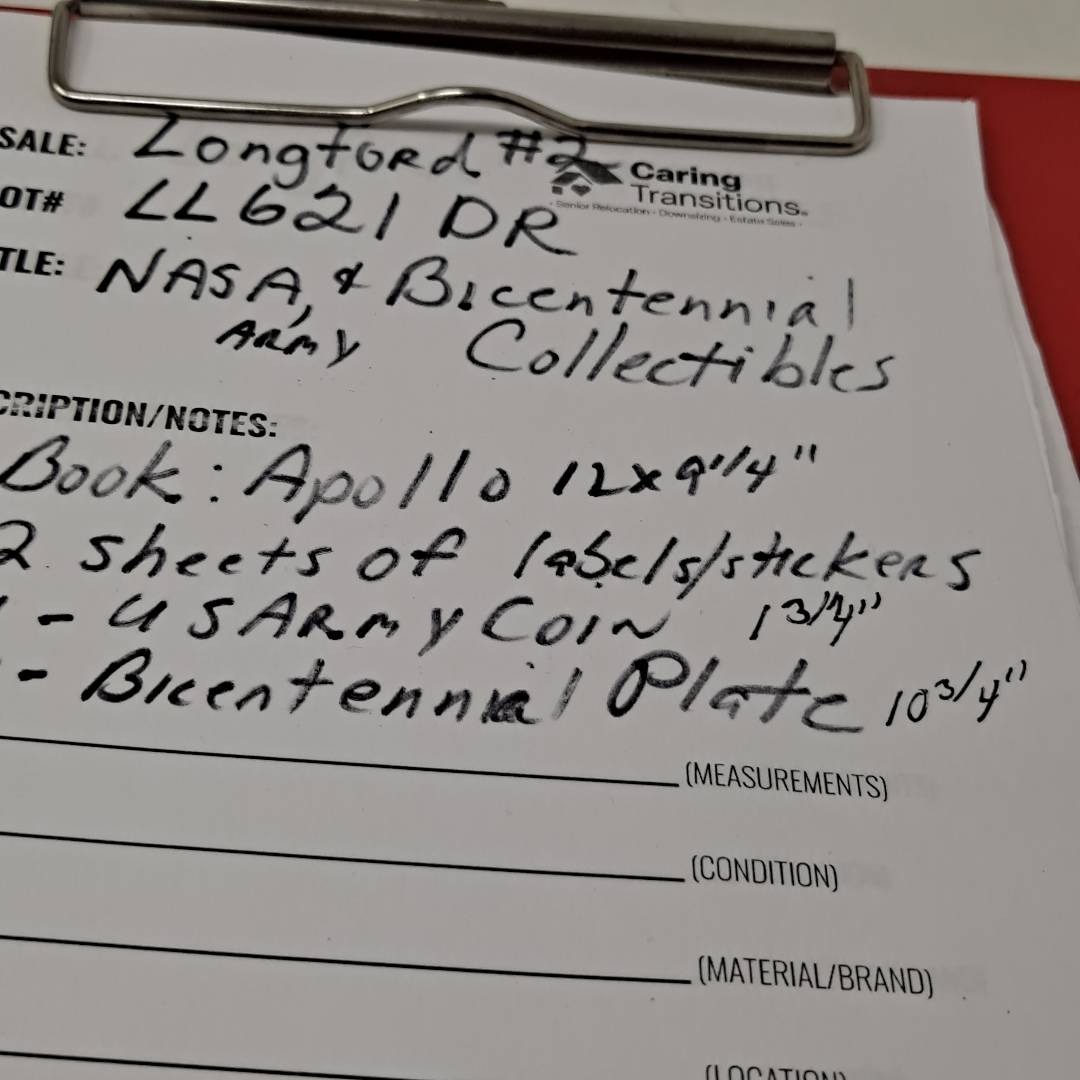 SALE: Longford #2
Caring
Transitions.
Senior Relocation · Downsizing · Estate Sales
OT# LL621 DR
TLE: NASA, & Bicentennial
ARMY Collectibles
CRIPTION/NOTES:
Book: Apollo 12x9 1/4"
2 sheets of labels/stickers
- US ARMY COIN 1 3/4"
- Bicentennial Plate 10 3/4"
(MEASUREMENTS)
(CONDITION)
(MATERIAL/BRAND)
(LOCATION)